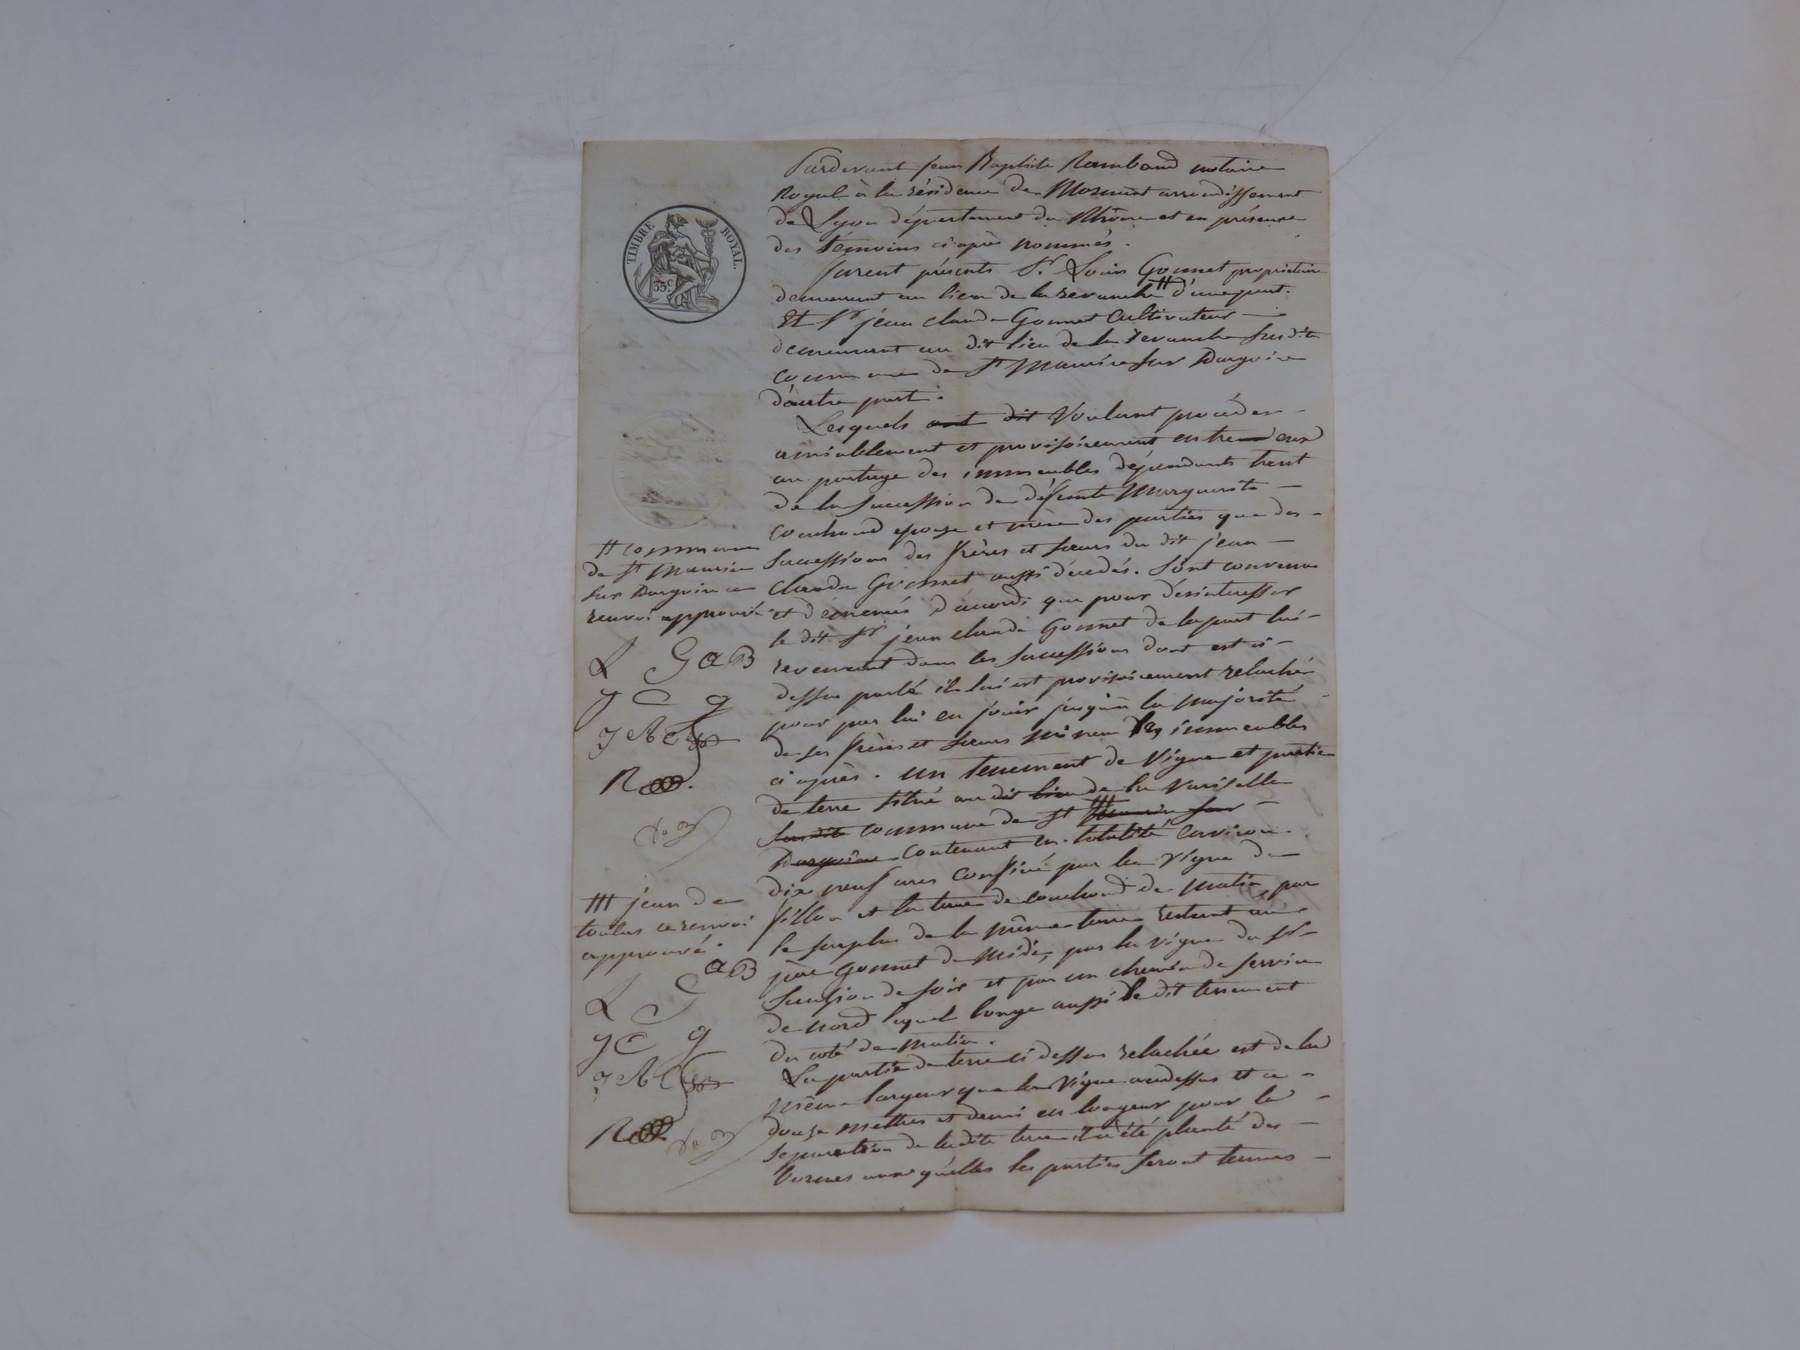 TIMBRE ROYAL.
35 c.
Pardevant jean Baptiste Rambaud notaire
Royal à la résidence de Mornant arrondissement
de Lyon département du Rhône et en présence
des témoins ci après nommés.
furent présents Sr. Louis Gonnet propriétaire
demeurant au lieu de la revanche # d'une part.
Et Sr jean claude Gonnet Cultivateur
demeurant au dit lieu de la revanche susdite
commune de St Maurice sur Dargoire
d'autre part.
Lesquels ont dit Voulant procéder
amiablement et provisoirement entre eux
au partage des immeubles dépendants tant
de la succession de défunte Marguerite
couchoud épouse et mère des parties que des
successions des frères et sœurs du dit jean
claude Gonnet aussi décédés. Sont convenus
et demeurés d'accord que pour désintéresser
le dit Sr jean claude Gonnet de la part lui
revenant dans les successions dont est ci
dessus parlé il lui est provisoirement relaché
pour par lui en jouir jusqu'à la majorité
de ses frères et sœurs mineurs les immeubles
ci après. un tenement de vigne et partie
de terre situé au dit lieu de la Variselle
susdite commune de St Maurice sur
Dargoire contenant en totalité environ
dix neuf ares confiné par la vigne de
fillon et la terre de couchoud de matin, par
le surplus de la même terre restant au
père Gonnet de midi, par la vigne du Sr
de soir et par un chemin de service
de nord lequel longe aussi le dit tenement
du coté de matin.
La partie de terre ci dessus relachée est de la
même largeur que la vigne au dessus et a
douze mettres et demi en longeur pour la
séparation de la dite terre il a été planté des
bornes auxquelles les parties seront tenues
# commune
de St Maurice
sur Dargoire ce
renvoi approuvé
L G aB
J C g
R
### jean de
toulas ce renvoi
approuvé.
aB
L G
J C g
R